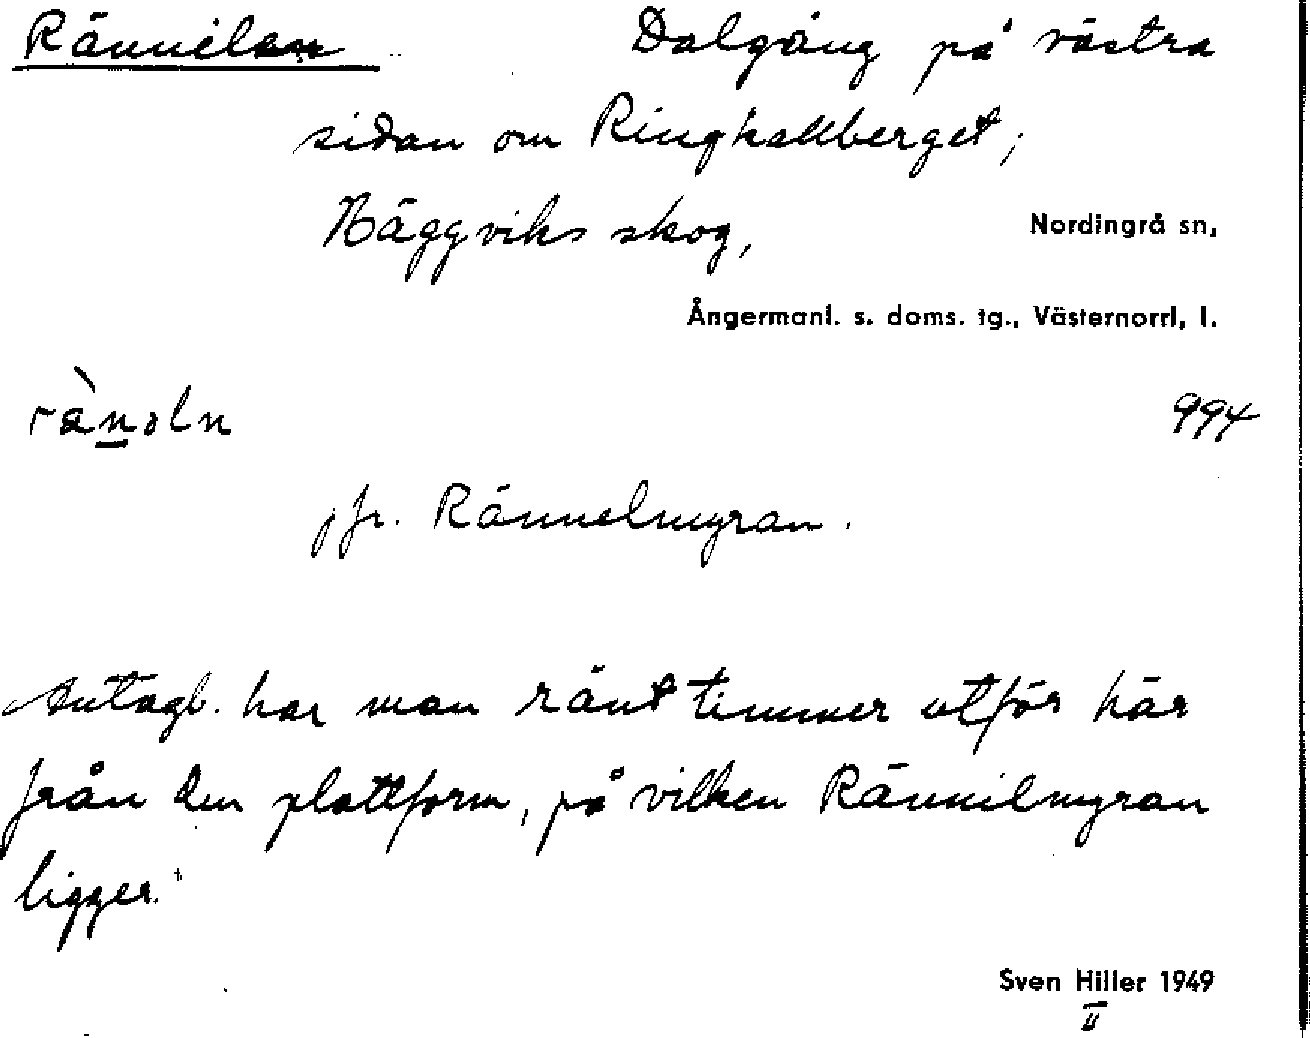 Rännilen Dalgång på västra
sidan om Ringkallberget;
Häggviks skog, Nordingrå sn,
Ångermanl. s. doms. tg., Västernorrl, l.
994
jfr. Rännelmyran.
Antagl. har man ränt timmer utför här
från den plattform, på vilken Rännilmyran
ligger.
Sven Hiller 1949
II